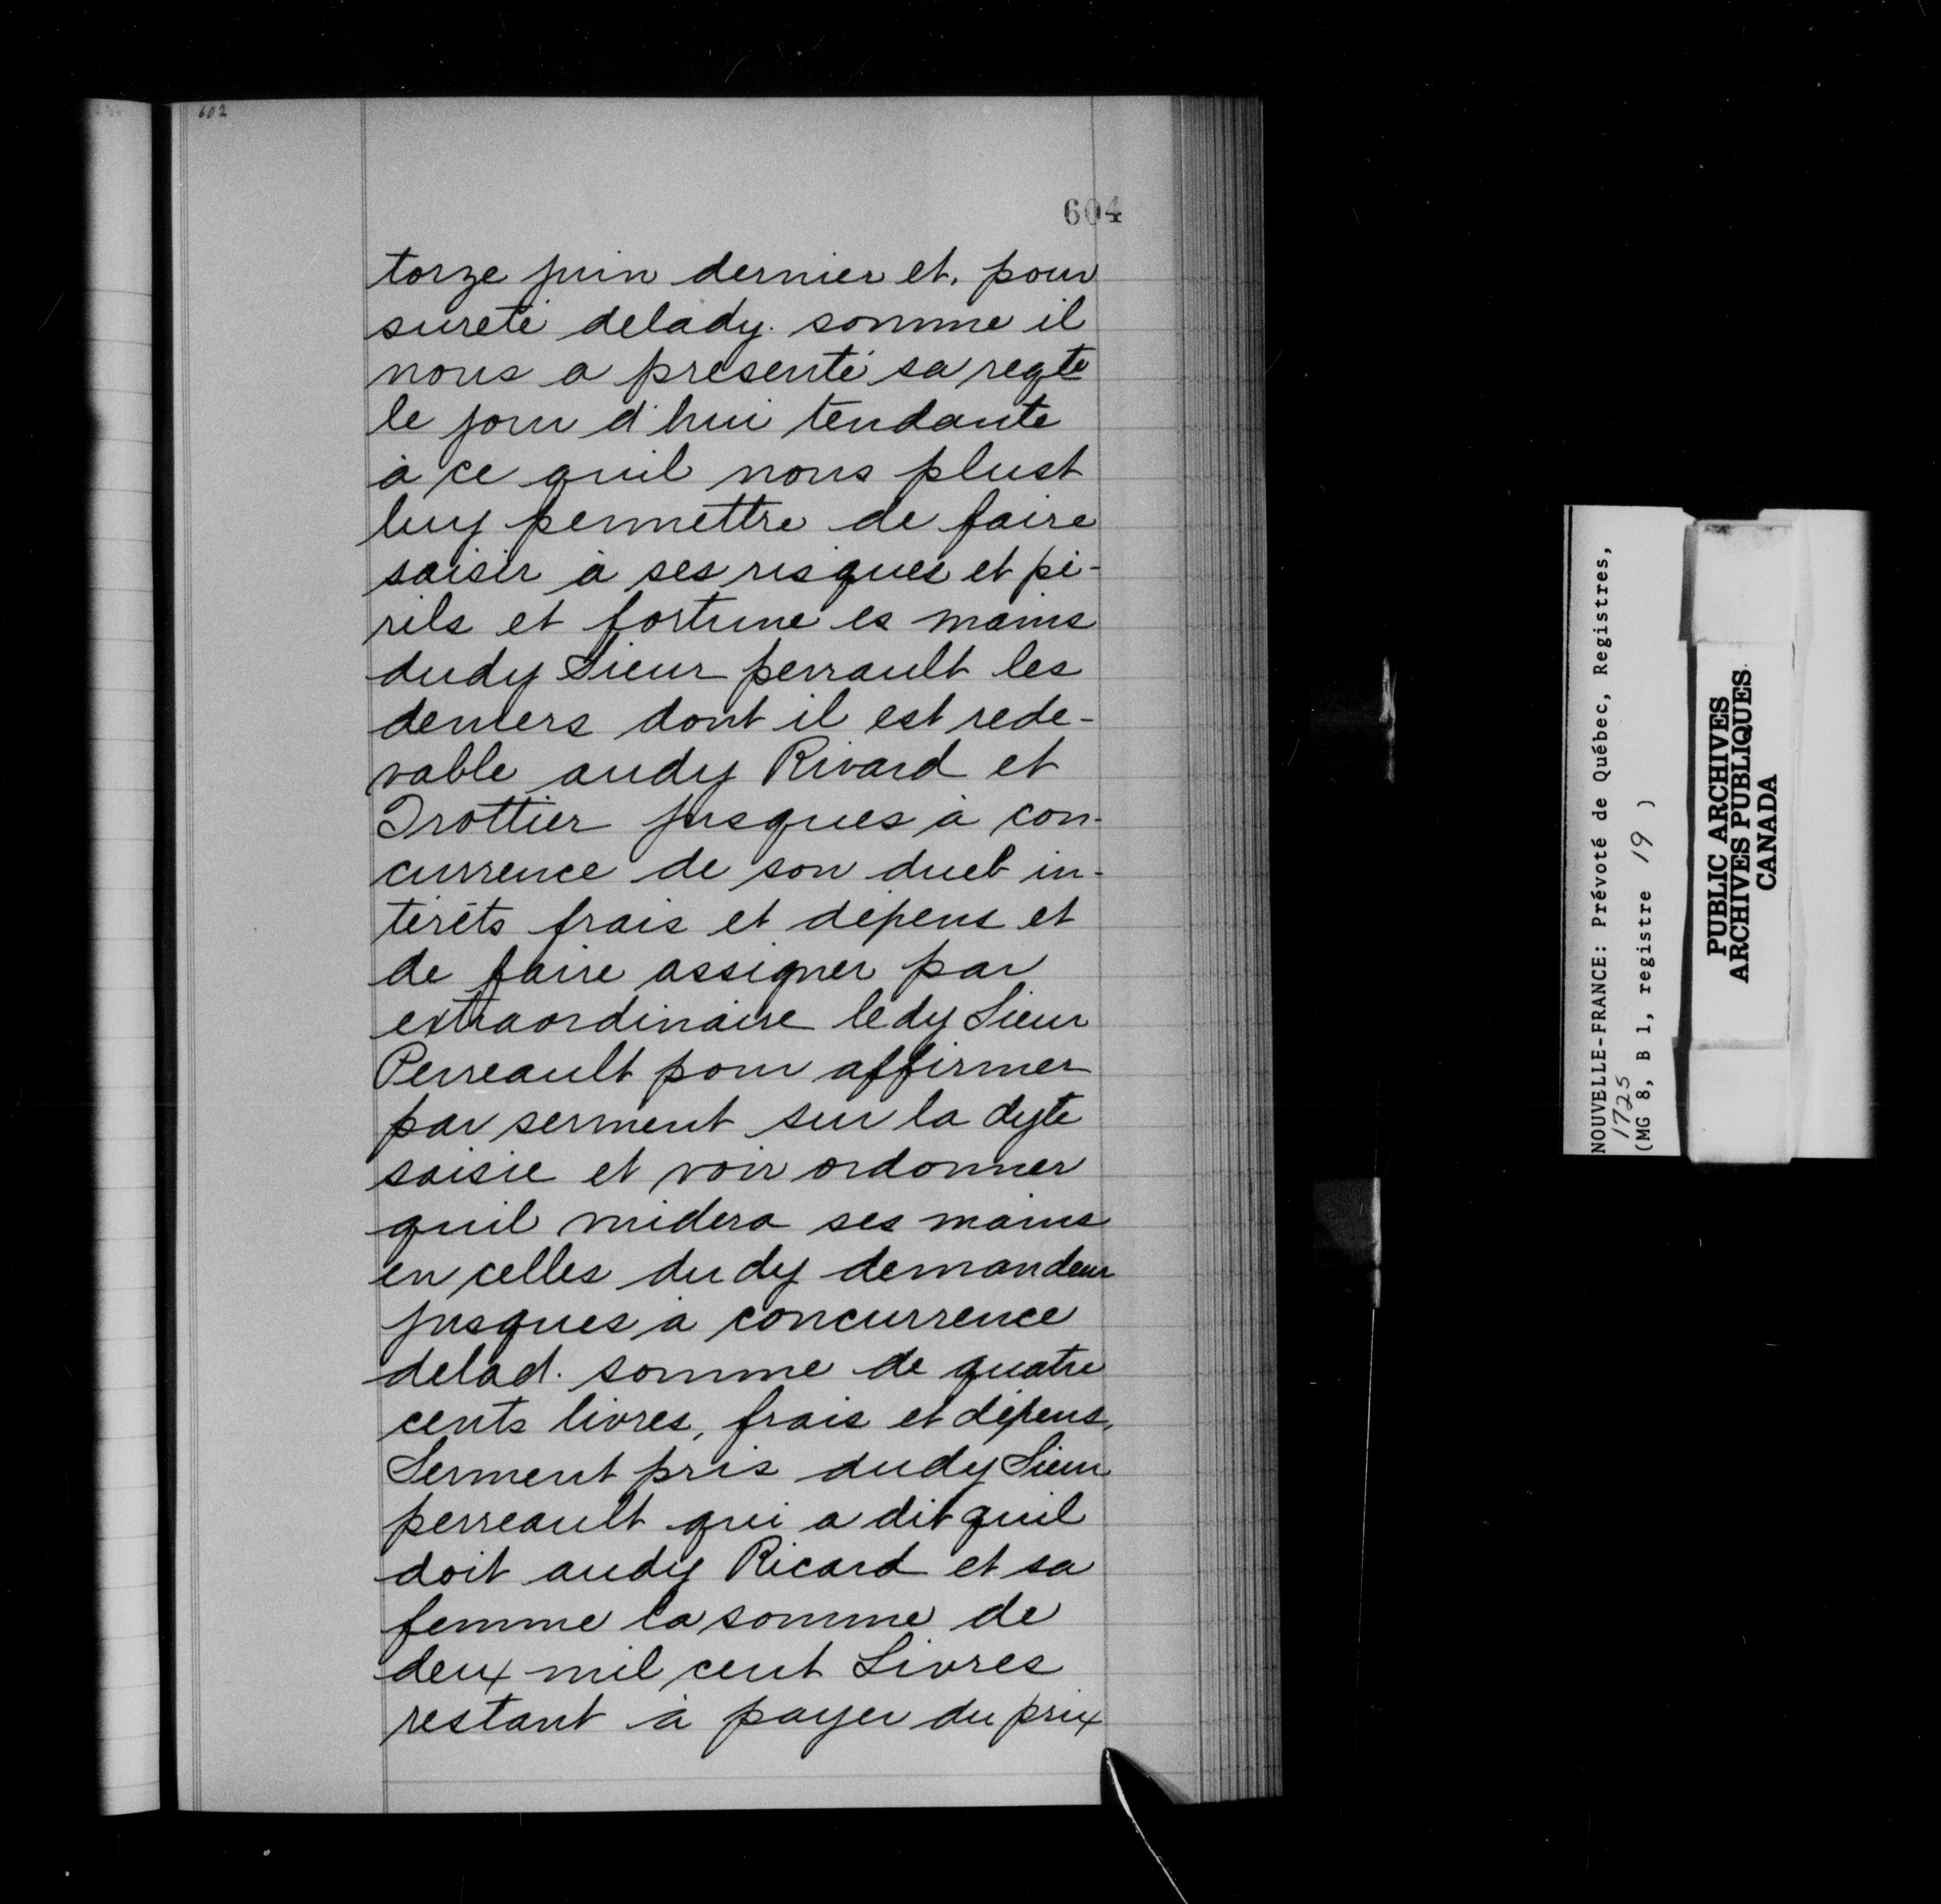 602
604
torze juin dernier et. pour
sureté delady. somme il
nous a presenté sa reqte
le jour d'hui tendante
à ce quil nous plust
luy permettre de faire
saisir à ses risques et pé-
rils et fortune es mains
dudy Sieur perrault les
deniers dont il est rede-
vable audy Rivard et
Trottier jusques à con-
currence de son dueb in-
térêts frais et dépens et
de faire assigner par
extraordinaire ledy Sieur
Perreault pour affirmer
par serment sur la dyte
saisie et voir ordonner
quil midera ses mains
en celles dudy demandeur
jusques à concurrence
delad. somme de quatre
cents livres, frais et dépens,
Serment pris dudy Sieur
perreault qui a dit quil
doit audy Ricard et sa
femme la somme de
deux mil cent Livres
restant à payer du prix
NOUVELLE-FRANCE: Prévoté de Québec, Registres,
1725
(MG 8, B 1, registre 19 )
PUBLIC ARCHIVES
ARCHIVES PUBLIQUES
CANADA